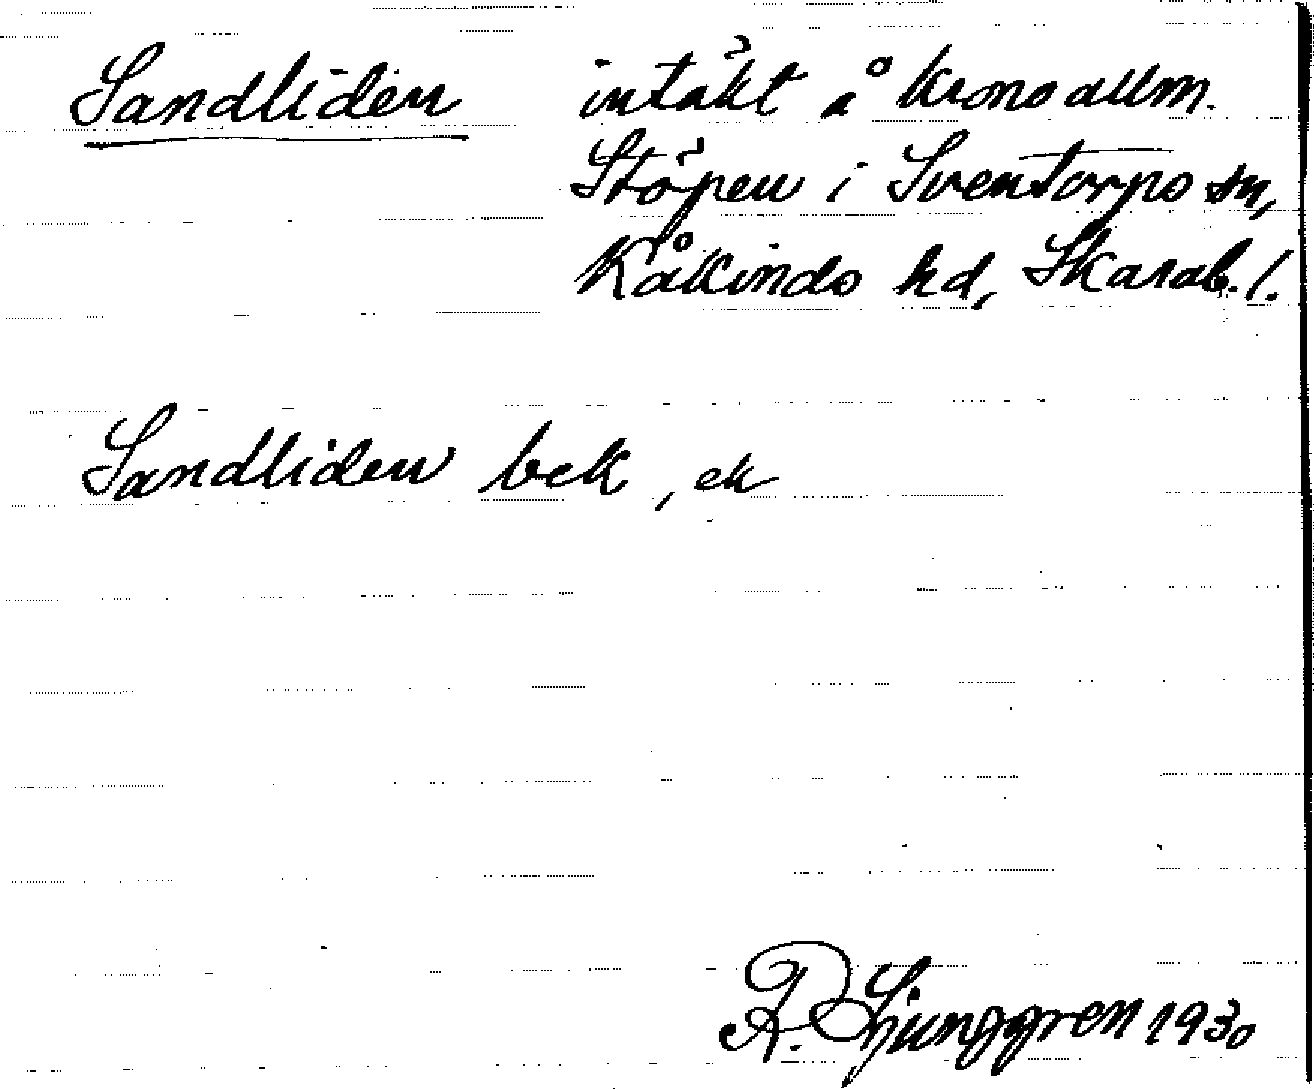 Sandliden intäkt å kronoallm.
Stöpen i Sventorps sn,
Kåkinds hd, Skarab. l.
Sandliden bek, ek
R. Ljunggren 1930